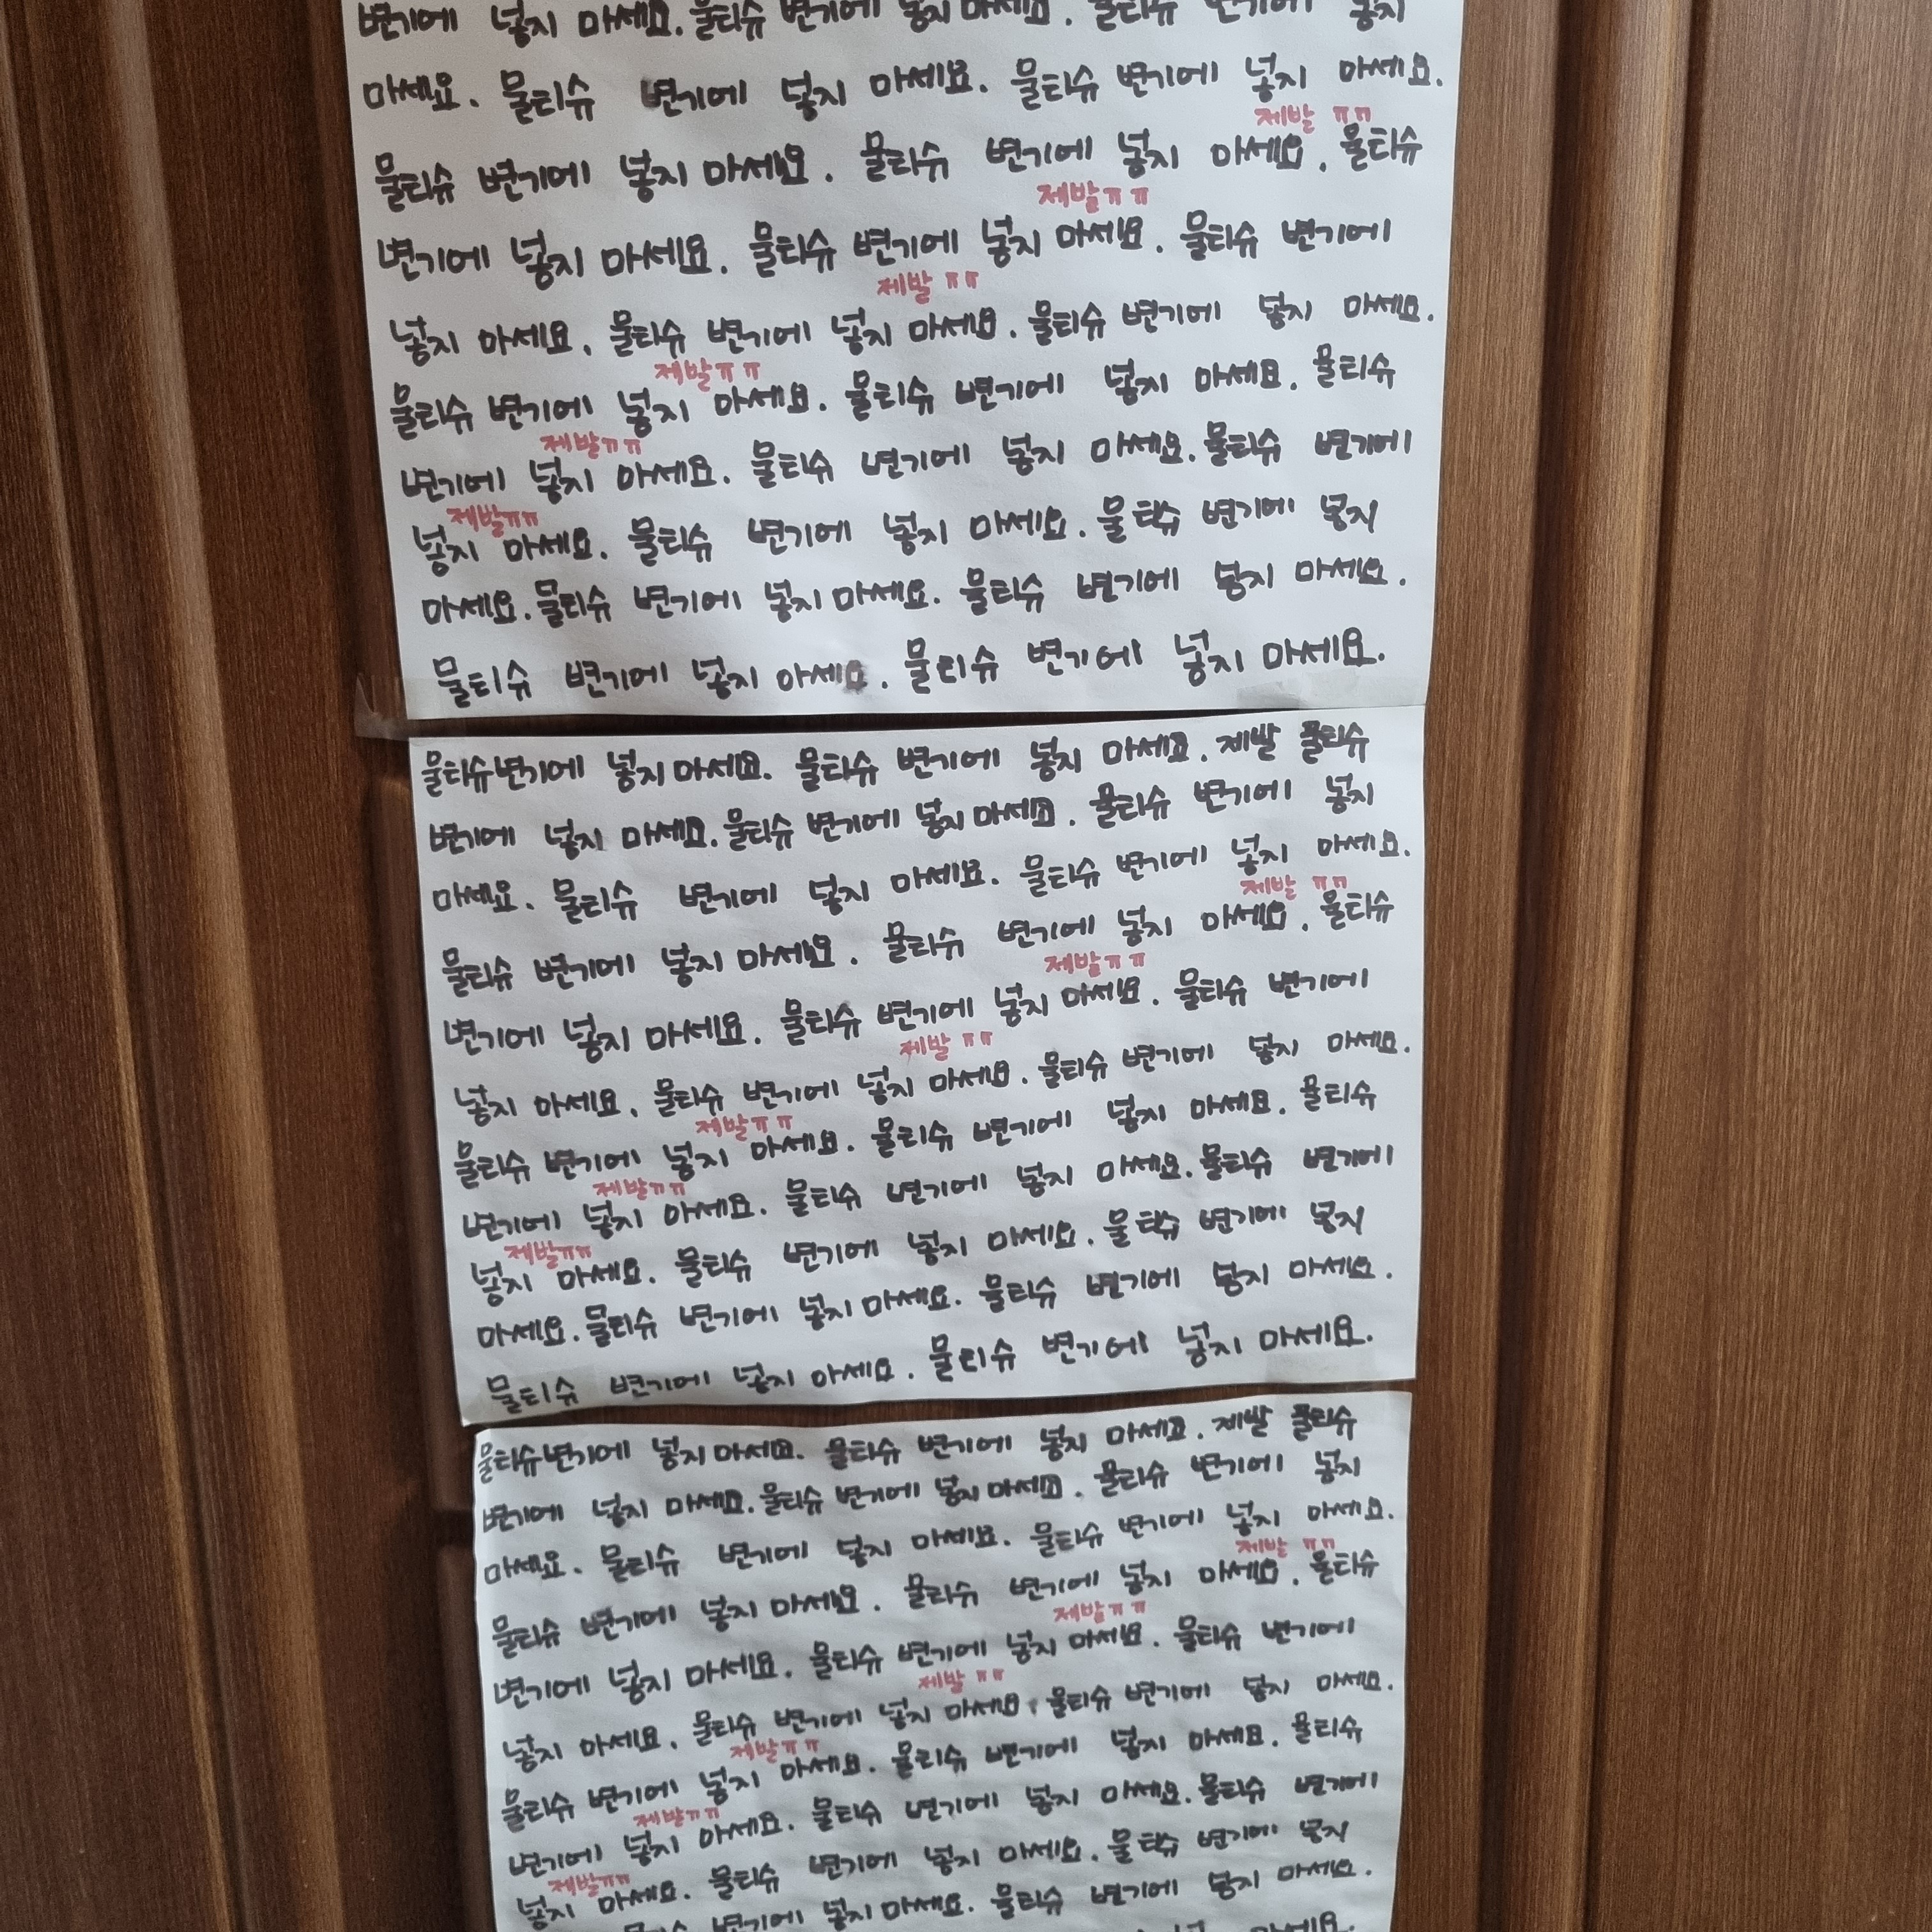 변기에 넣지 마세요. 물티슈 변기에 넣지 마세요. 물티슈 변기에 넣지
마세요. 물티슈 변기에 넣지 마세요. 물티슈 변기에 넣지 마세요.
제발 ㅠㅠ
물티슈 변기에 넣지 마세요. 물티슈 변기에 넣지 마세요. 물티슈
제발ㅠㅠ
변기에 넣지 마세요. 물티슈 변기에 넣지 마세요. 물티슈 변기에
제발 ㅠㅠ
넣지 마세요. 물티슈 변기에 넣지 마세요. 물티슈 변기에 넣지 마세요.
제발ㅠㅠ
물티슈 변기에 넣지 마세요. 물티슈 변기에 넣지 마세요. 물티슈
제발ㅠㅠ
변기에 넣지 마세요. 물티슈 변기에 넣지 마세요. 물티슈 변기에
제발ㅠㅠ
넣지 마세요. 물티슈 변기에 넣지 마세요. 물티슈 변기에 넣지
마세요. 물티슈 변기에 넣지 마세요. 물티슈 변기에 넣지 마세요.
물티슈 변기에 넣지 마세요. 물티슈 변기에 넣지 마세요.
물티슈 변기에 넣지 마세요. 물티슈 변기에 넣지 마세요. 제발 물티슈
변기에 넣지 마세요. 물티슈 변기에 넣지 마세요. 물티슈 변기에 넣지
마세요. 물티슈 변기에 넣지 마세요. 물티슈 변기에 넣지 마세요.
제발 ㅠㅠ
물티슈 변기에 넣지 마세요. 물티슈 변기에 넣지 마세요. 물티슈
제발ㅠㅠ
변기에 넣지 마세요. 물티슈 변기에 넣지 마세요. 물티슈 변기에
제발 ㅠㅠ
넣지 마세요. 물티슈 변기에 넣지 마세요. 물티슈 변기에 넣지 마세요.
제발ㅠㅠ
물티슈 변기에 넣지 마세요. 물티슈 변기에 넣지 마세요. 물티슈
제발ㅠㅠ
변기에 넣지 마세요. 물티슈 변기에 넣지 마세요. 물티슈 변기에
제발ㅠㅠ
넣지 마세요. 물티슈 변기에 넣지 마세요. 물티슈 변기에 넣지
마세요. 물티슈 변기에 넣지 마세요. 물티슈 변기에 넣지 마세요.
물티슈 변기에 넣지 마세요. 물티슈 변기에 넣지 마세요.
물티슈 변기에 넣지 마세요. 물티슈 변기에 넣지 마세요. 제발 물티슈
변기에 넣지 마세요. 물티슈 변기에 넣지 마세요. 물티슈 변기에 넣지
마세요. 물티슈 변기에 넣지 마세요. 물티슈 변기에 넣지 마세요.
제발 ㅠㅠ
물티슈 변기에 넣지 마세요. 물티슈 변기에 넣지 마세요. 물티슈
제발ㅠㅠ
변기에 넣지 마세요. 물티슈 변기에 넣지 마세요. 물티슈 변기에
제발 ㅠㅠ
넣지 마세요. 물티슈 변기에 넣지 마세요. 물티슈 변기에 넣지 마세요.
제발ㅠㅠ
물티슈 변기에 넣지 마세요. 물티슈 변기에 넣지 마세요. 물티슈
제발ㅠㅠ
변기에 넣지 마세요. 물티슈 변기에 넣지 마세요. 물티슈 변기에
제발ㅠㅠ
넣지 마세요. 물티슈 변기에 넣지 마세요. 물티슈 변기에 넣지
물티슈 변기에 넣지 마세요. 물티슈 변기에 넣지 마세요.